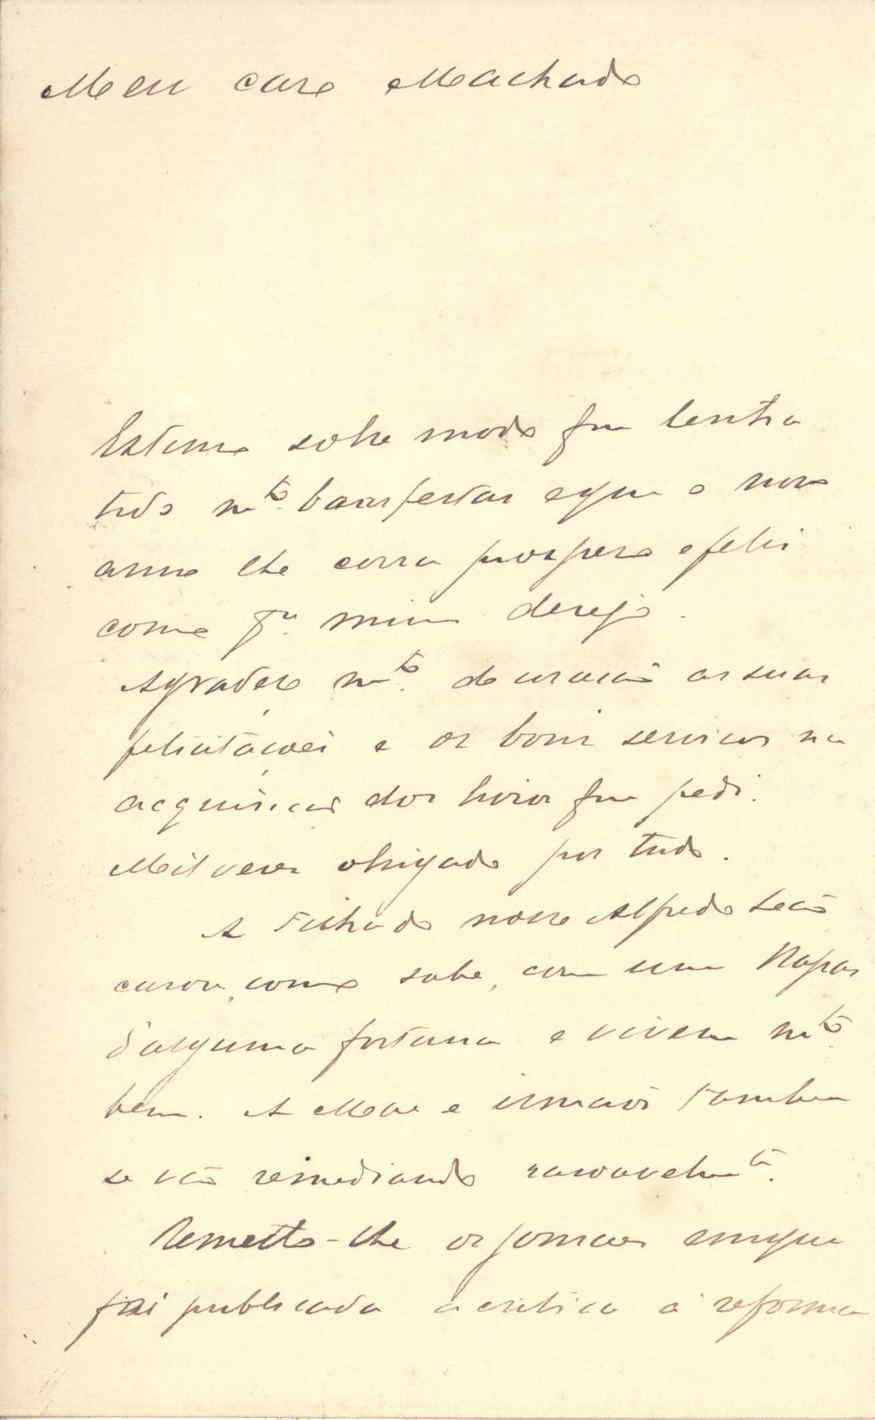 Meu caro Machado
Estimo sobre modo que tenha
tido m.to boas festas e que o novo
anno lhe corra prospero e feliz
como p.a mim desejo.
Agradeço m.to de coração as suas
felicitações e os bons serviços na
acquisição dos livros que pedi.
Mil vezes obrigado por tudo.
A Filha do nosso Alfredo Leão
casou, como sabe, com um Rapaz
d'alguma fortuna e vivem m.to
bem. A Mãe e irmãos tambem
se vão remediando rasoavelm.te.
Remetto-lhe os jornaes em que
foi publicada a critica á reforma